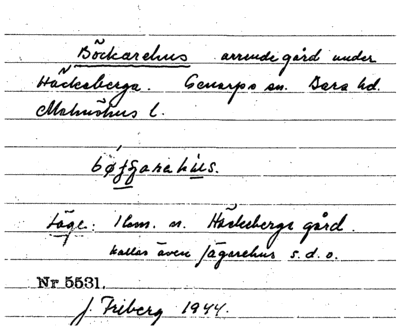 Böckarehus arrendegård under
Häckeberga. Genarps sn. Bara hd.
Malmöhus l.
Läge: 1 km. n. Häckeberga gård.
kallas även Jägarehus s.d.o.
Nr 5531.
J. Friberg 1944.